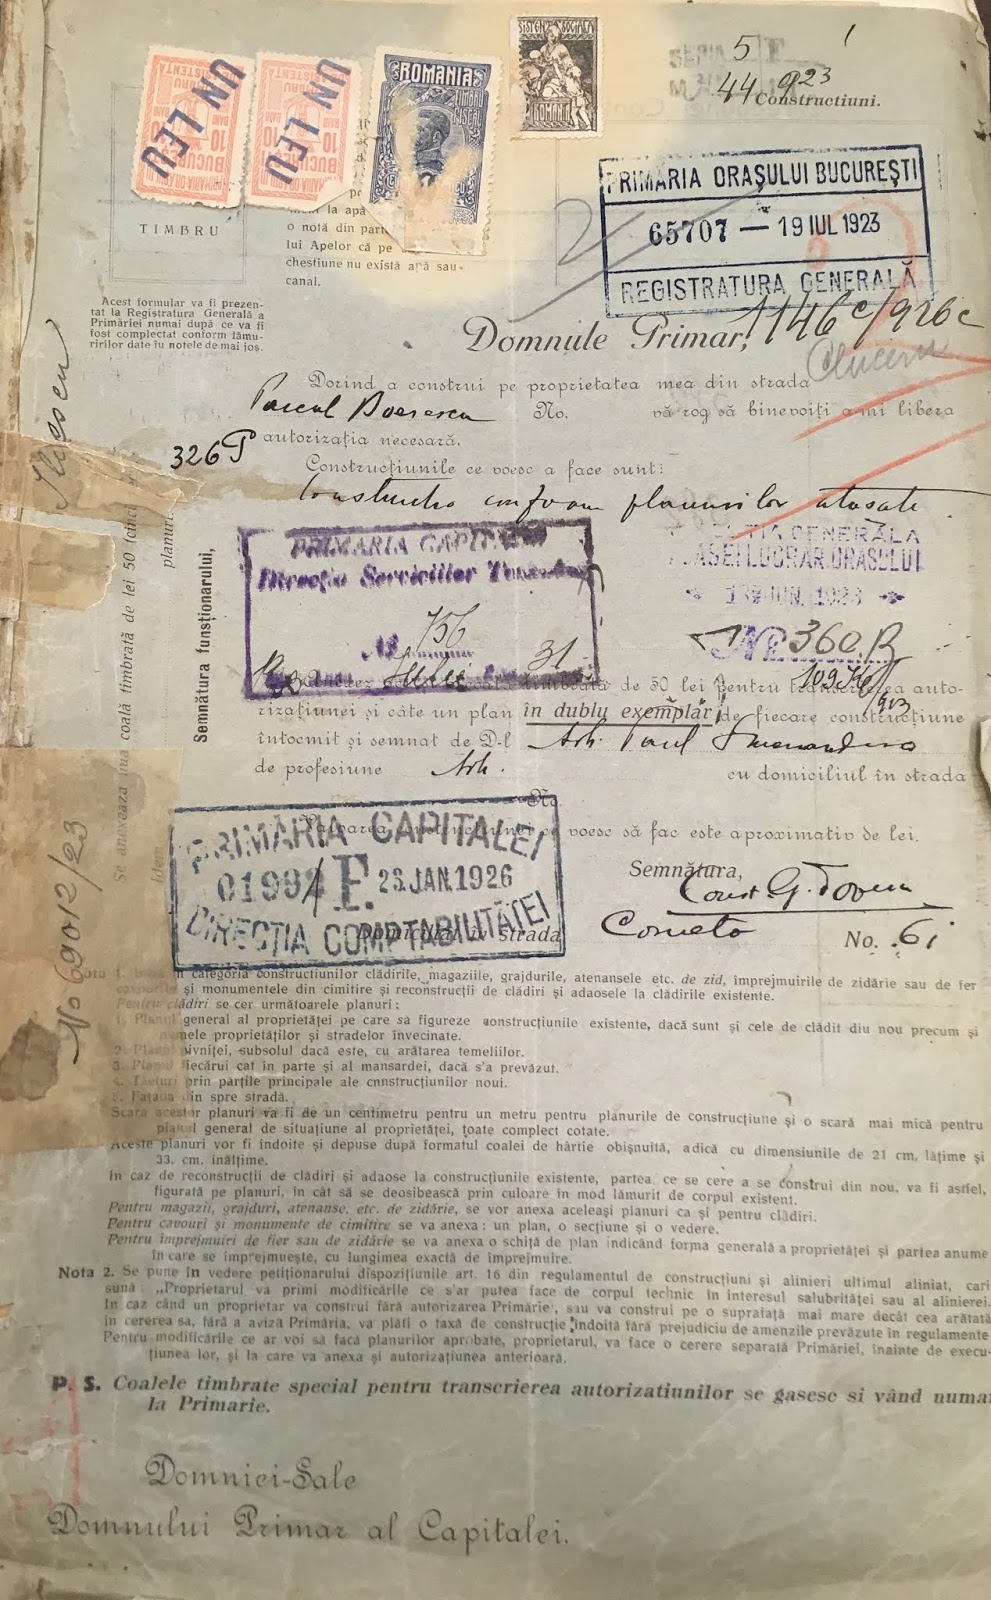 UN LEU
UN LEU
ROMANIA
TIMBRU FISCAL
ASISTENTA SOCIALA
ROMANIA
SERIA
5
1
44 923
Constructiuni.
TIMBRU
la apă
o notă din part
lui Apelor că pe
chestiune nu există apă sau
canal.
PRIMARIA ORAȘULUI BUCUREȘTI
65707 — 19 IUL 1923
REGISTRATURA GENERALĂ
Acest formular va fi prezen-
tat la Registratura Generală a
Primăriei numai după ce va fi
fost complectat conform lămu-
ririlor date în notele de mai jos.
Domnule Primar,
1146c/926c
Dorind a construi pe proprietatea mea din strada
No. vă rog să binevoiți a-mi libera
autorizația necesară.
326
Construcțiunile ce voesc a face sunt:
conform planurilor atașate
PRIMARIA CAPITALEI
Direcția Serviciilor
756
31
GENERALA
LUCRAR.ORASULUI
No 360.B
10976/923
de 50 lei pentru transcrierea auto-
rizațiunei și câte un plan în dublu exemplar de fiecare construcțiune
întocmit și semnat de D-l Arh. Paul Smarandescu
de profesiune Arh. cu domiciliul în strada
No.
ce voesc să fac este aproximativ de lei.
PRIMĂRIA CAPITALEI
F. 23 JAN. 1926
DIRECȚIA COMPTABILITĂȚEI
Semnătura,
Const. G.
în strada No. 61
Semnătura funsționarului,
Se anexează una coală timbrată de lei 50 (cinci
planuri.
Idem
No 69012/23
Nota 1. în categoria construcțiunilor clădirile, magaziile, grajdurile, atenansele etc. de zid, împrejmuirile de zidărie sau de fer
și monumentele din cimitire și reconstrucții de clădiri și adaosele la clădirile existente.
Pentru clădiri se cer următoarele planuri:
1. Planul general al proprietății pe care să figureze construcțiunile existente, dacă sunt și cele de clădit diu nou precum și
numele proprietăților și stradelor învecinate.
2. Planul pivniței, subsolul dacă este, cu arătarea temeliilor.
3. Planul fiecărui cat în parte și al mansardei, dacă s'a prevăzut.
4. Tăeturi prin părțile principale ale cnnstrucțiunilor noui.
5. Fațada din spre stradă.
Scara acestor planuri va fi de un centimetru pentru un metru pentru planurile de construcțiune și o scară mai mică pentru
planul general de situațiune al proprietăței, toate complect cotate.
Aceste planuri vor fi îndoite și depuse după formatul coalei de hârtie obișnuită, adică cu dimensiunile de 21 cm, lățime și
33. cm. înălțime.
In caz de reconstrucții de clădiri și adaose la construcțiunile existente, partea ce se cere a se construi din nou, va fi astfel,
figurată pe planuri, în cât să se deosibească prin culoare în mod lămurit de corpul existent.
Pentru magazii, grajduri, atenanse, etc. de zidărie, se vor anexa aceleași planuri ca și pentru clădiri.
Pentru cavouri și monumente de cimitire se va anexa: un plan, o secțiune și o vedere.
Pentru împrejmuiri de fier sau de zidărie se va anexa o schiță de plan indicând forma generală a proprietăței și partea anume
în care se împrejmuește, cu lungimea exactă de împrejmuire.
Nota 2. Se pune în vedere petiționarului dispozițiunile art. 16 din regulamentul de construcțiuni și alinieri ultimul aliniat, cari
sună: „Proprietarul va primi modificările ce s'ar putea face de corpul technic în interesul salubrităței sau al alinierei.
In caz când un proprietar va construi fără autorizarea Primărie, sau va construi pe o suprafață mai mare decât cea arătată
în cererea sa, fără a aviza Primăria, va plăti o taxă de construcție îndoită fără prejudiciu de amenzile prevăzute în regulamente
Pentru modificările ce ar voi să facă planurilor aprobate, proprietarul, va face o cerere separată Primăriei, înainte de execu-
țiunea lor, și la care va anexa și autorizațiunea anterioară.
P. S. Coalele timbrate special pentru transcrierea autorizatiunilor se gasesc si vând numai
la Primarie.
Domniei-Sale
Domnului Primar al Capitalei.